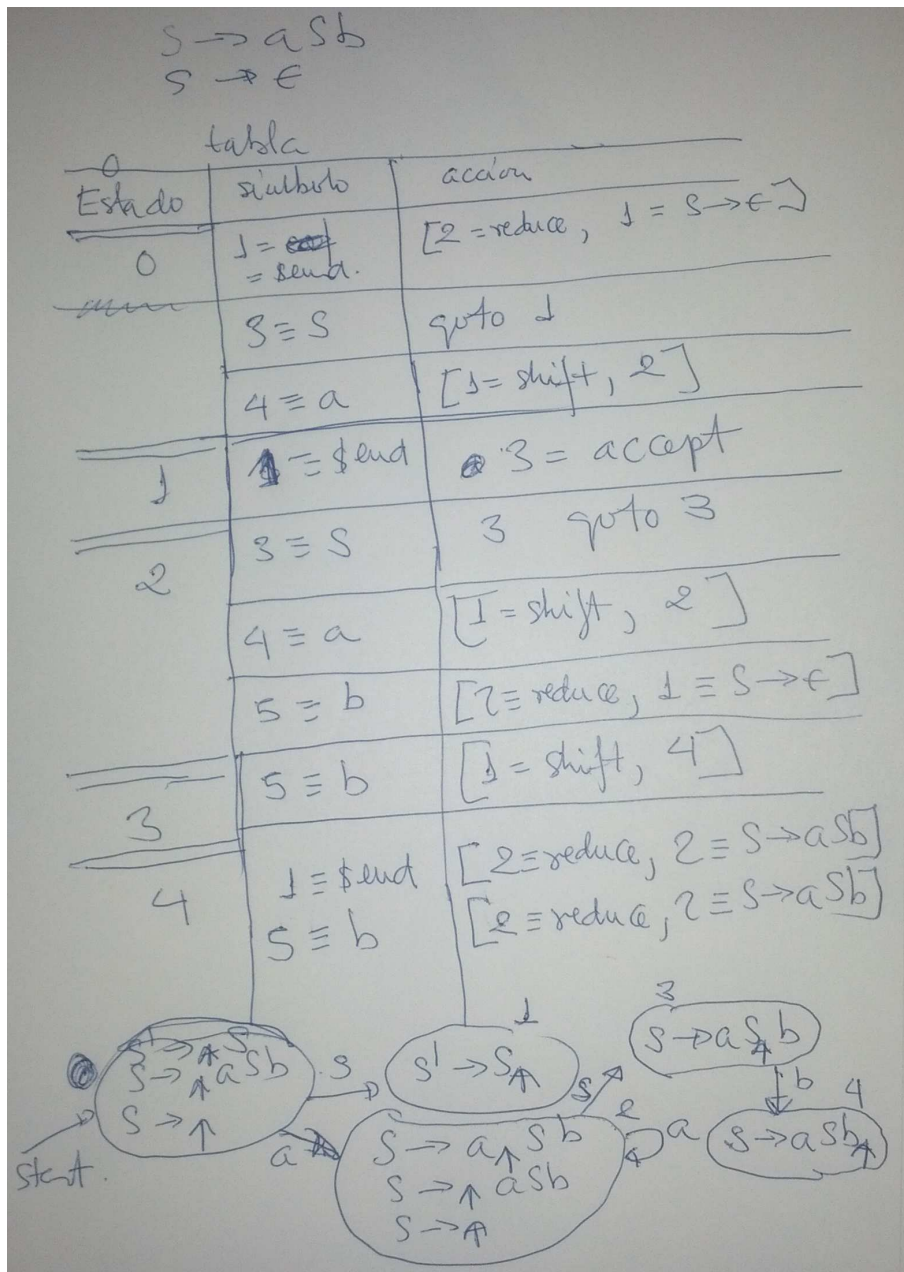 S → aSb
S → ε
tabla
Estado símbolo acción
0 1 = = $end. [2 = reduce, 1 = S → ε]
3 ≡ S goto 1
4 ≡ a [1 = shift, 2]
1 1 ≡ $end 3 = accept
2 3 ≡ S 3 goto 3
4 ≡ a [1 = shift, 2]
5 ≡ b [2 ≡ reduce, 1 ≡ S → ε]
3 5 ≡ b [1 = shift, 4]
4 1 ≡ $end [2 ≡ reduce, 2 ≡ S → aSb]
5 ≡ b [2 ≡ reduce, 2 ≡ S → aSb]
S' → ↑ S
S → ↑ aSb
S → ↑
start.
S
a
1
S' → S↑
2
S → a↑Sb
S → ↑aSb
S → ↑
a
S
3
S → aS↑b
b
4
S → aSb↑